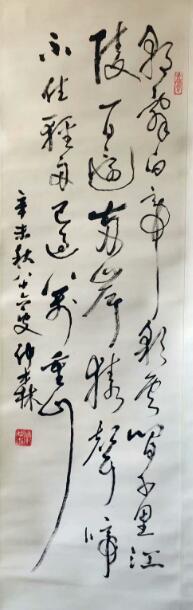 朝辭白帝彩云間千里江
陵一日還兩岸猿聲啼
不住輕舟已過萬重山
辛未秋八十六叟